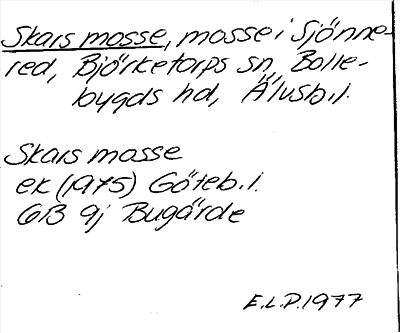 Skars mosse, mosse i Sjönne-
red, Björketorps sn, Bolle-
bygds hd, Älvsb.l.
Skars mosse
ek (1975) Göteb.l.
6B 9j Bugärde
E.L.P.1977